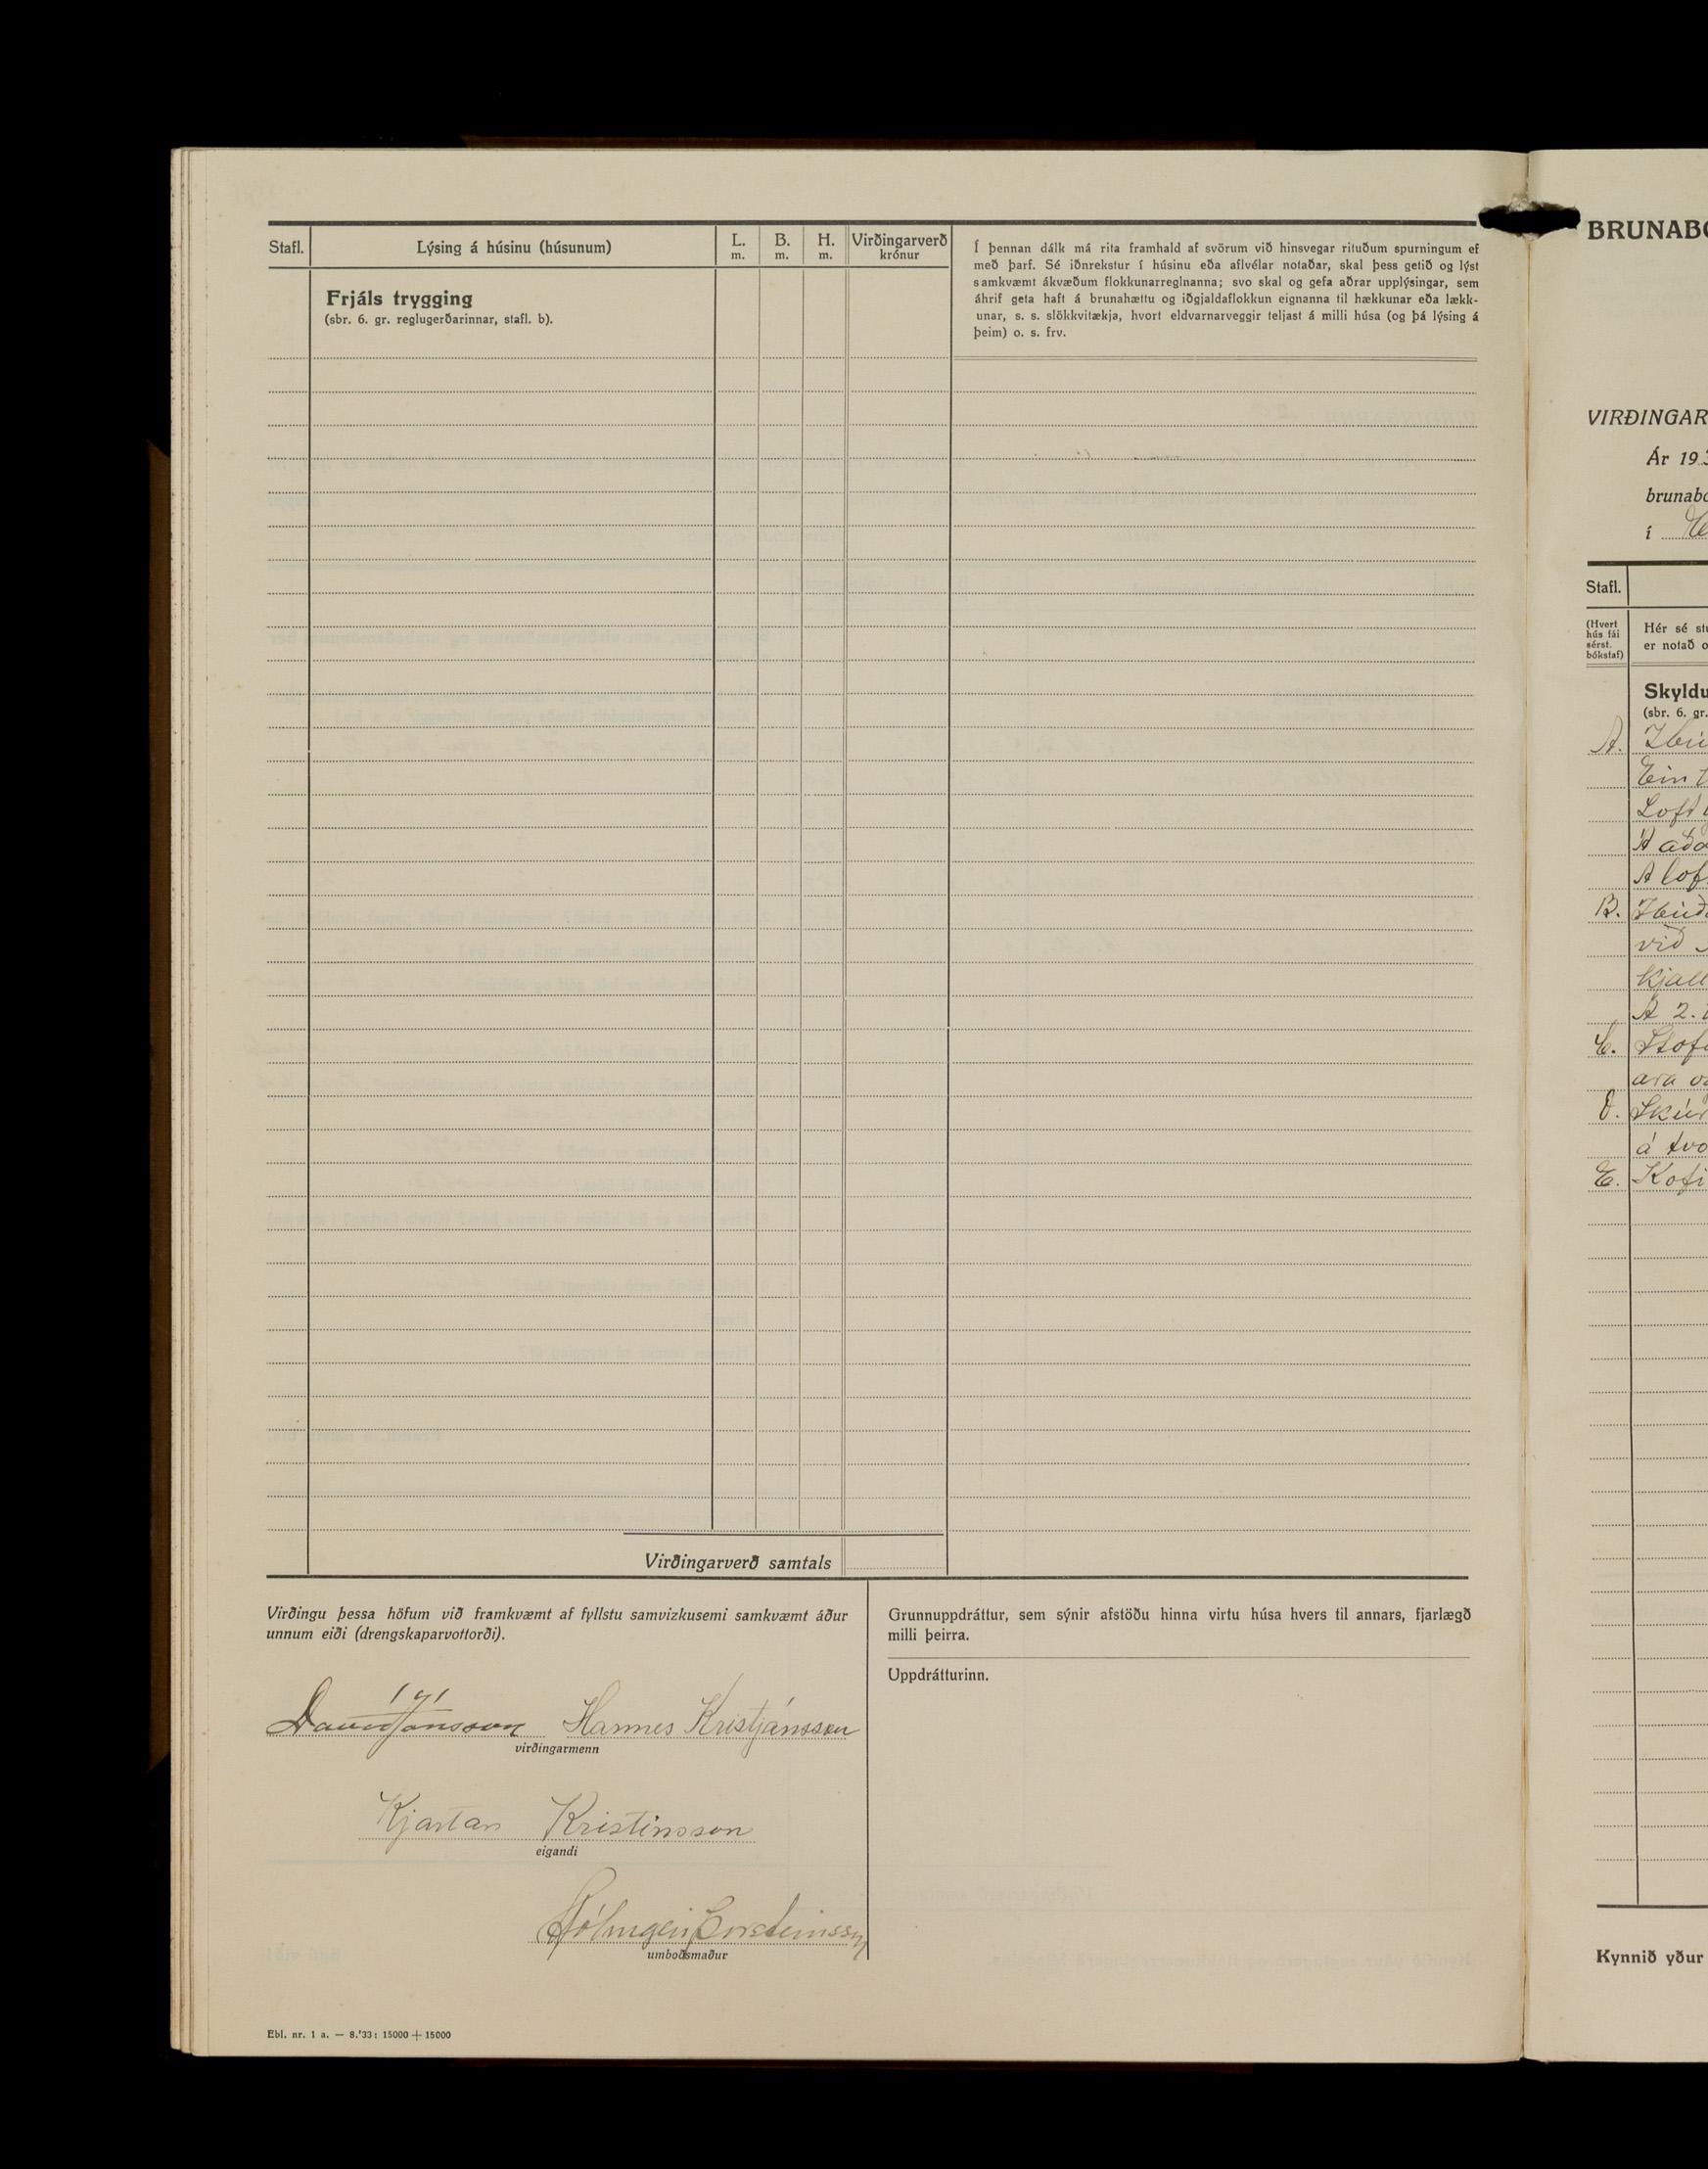 Stafl.
Lýsing á húsinu (húsunum)
L.
m.
B.
m.
H.
m.
Virðingarverð
krónur
Í þennan dálk má rita framhald af svörum við hinsvegar rituðum spurningum ef
með þarf. Sé iðnrekstur í húsinu eða aflvélar notaðar, skal þess getið og lýst
samkvæmt ákvæðum flokkunarreglnanna; svo skal og gefa aðrar upplýsingar, sem
áhrif geta haft á brunahættu og iðgjaldaflokkun eignanna til hækkunar eða lækk-
unar, s. s. slökkvitækja, hvort eldvarnarveggir teljast á milli húsa (og þá lýsing á
þeim) o. s. frv.
Frjáls trygging
(sbr. 6. gr. reglugerðarinnar, stafl. b).
Virðingarverð samtals
Virðingu þessa höfum við framkvæmt af fyllstu samvizkusemi samkvæmt áður
unnum eiði (drengskaparvottorði).
Davíð Jónsson Hannes Kristjánsson
virðingarmenn
Kjartan Kristinsson
eigandi
Hólmgeir Þorsteinsson
umboðsmaður
Grunnuppdráttur, sem sýnir afstöðu hinna virtu húsa hvers til annars, fjarlægð
milli þeirra.
Uppdrátturinn.
Ebl. nr. 1 a. — 8.'33: 15000 + 15000
BRUNABO
VIRÐINGAR
Ár 193
brunabo
í
Stafl.
(Hvert
hús fái
sérst.
bókstaf)
Hér sé st
er notað o
Skyldu
(sbr. 6. gr.
A. Íbú
Ein
Loft
Á aða
Á lof
B. Íbúð
við
Kjall
Á 2.
C. Stof
ara og
D. Skúr
á tvo
E. Kofi
Kynnið yður